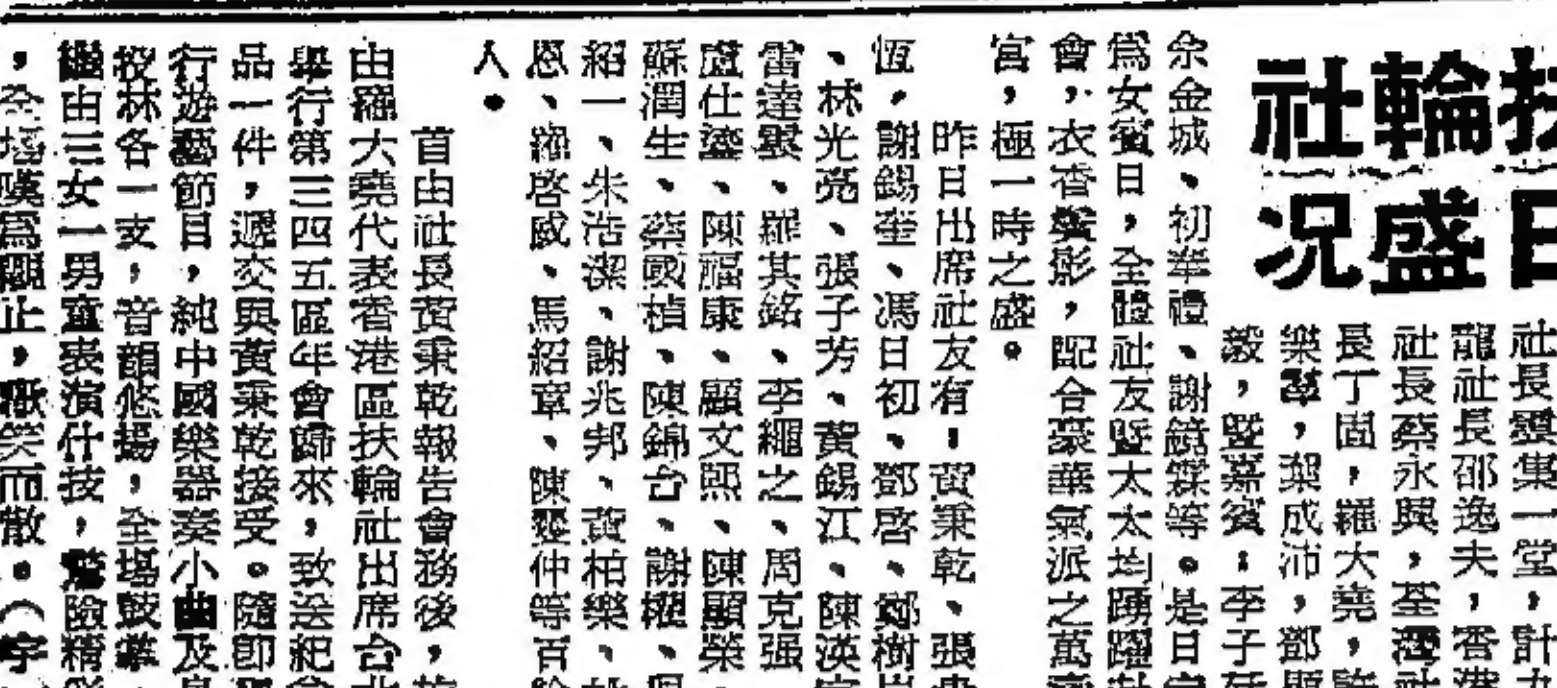 扶輪社
日盛況
社長雲集一堂，計
龍社長邵逸夫，香港
社長蔡永興，荃灣社
長丁固，羅大堯，許
樂羣，葉成沛，鄧顯
毅，暨嘉賓：李子
余金城、初举禮、謝鏡霖等。是日定
爲女賓日，全體社友暨太太均踴躍赴
會，衣香鬢影，配合豪華氣派之萬壽
宮，極一時之盛。
昨日出席社友有：黃秉乾、張
恆，謝錫奎、馮日初、鄧啓、鄭樹
、林光亮、張子芳、黃錫江、陳
雷達羣、羅其銘、李繩之、周克强
盧仕鎏、陳福康、顧文熙、陳顯榮
蘇潤生、蔡國楨、陳錦台、謝櫂、
紹一、朱浩潔、謝兆邦、黃柏樂、
恩、羅啓威、馬紹章、陳燮仲等百
人。
首由社長黃秉乾報告會務後，
由羅大堯代表香港區扶輪社出席台北
舉行第三四五區年會歸來，致送紀念
品一件，遞交與黃秉乾接受。隨即
行遊藝節目，純中國樂器奏小曲及
投林各一支，音韻悠揚，全場鼓掌
繼由三女一男童表演什技，驚險精
，全場嘆爲觀止，歡笑而散。（宇